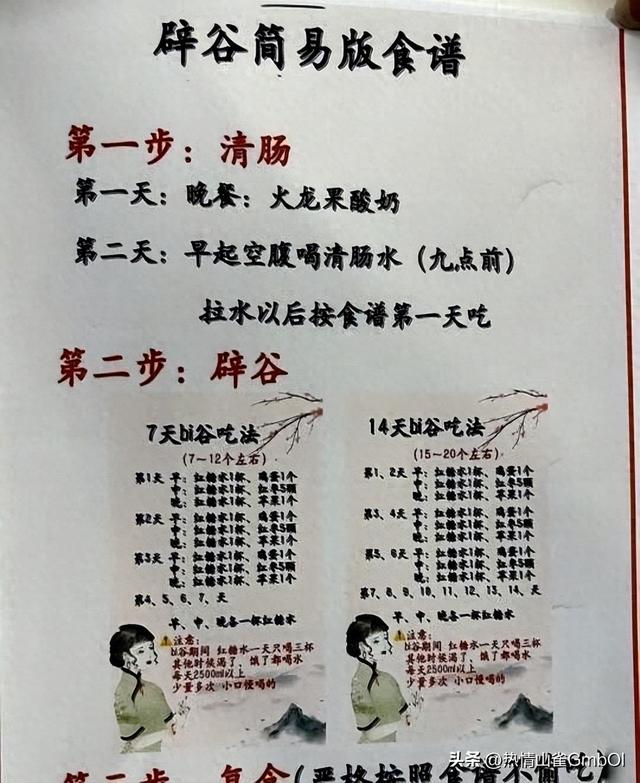 辟谷简易版食谱
第一步：清肠
第一天：晚餐：火龙果酸奶
第二天：早起空腹喝清肠水（九点前）
拉水以后按食谱第一天吃
第二步：辟谷
7天bi谷吃法
（7～12个左右）
第1天 早：红糖水1杯、鸡蛋1个
中：红糖水1杯、红枣5颗
晚：红糖水1杯、苹果1个
第2天 早：红糖水1杯、鸡蛋1个
中：红糖水1杯、红枣5颗
晚：红糖水1杯、苹果1个
第3天 早：红糖水1杯、鸡蛋1个
中：红糖水1杯、红枣5颗
晚：红糖水1杯、苹果1个
第4、5、6、7、天
早、中、晚各一杯红糖水
注意：
bi谷期间 红糖水一天只喝三杯
其他时候渴了、饿了都喝水
每天2500ml以上
少量多次 小口慢喝的
14天bi谷吃法
（15～20个左右）
第1、2天 早：红糖水1杯、鸡蛋1个
中：红糖水1杯、红枣5颗
晚：红糖水1杯、苹果1个
第3、4天 早：红糖水1杯、鸡蛋1个
中：红糖水1杯、红枣5颗
晚：红糖水1杯、苹果1个
第5、6天 早：红糖水1杯、鸡蛋1个
中：红糖水1杯、红枣5颗
晚：红糖水1杯、苹果1个
第7、8、9、10、11、12、13、14、天
早、中、晚各一杯红糖水
注意：
bi谷期间 红糖水一天只喝三杯
其他时候渴了、饿了都喝水
每天2500ml以上
少量多次 小口慢喝的
复食（严格按照食谱
头条 @热情山雀GmbOl